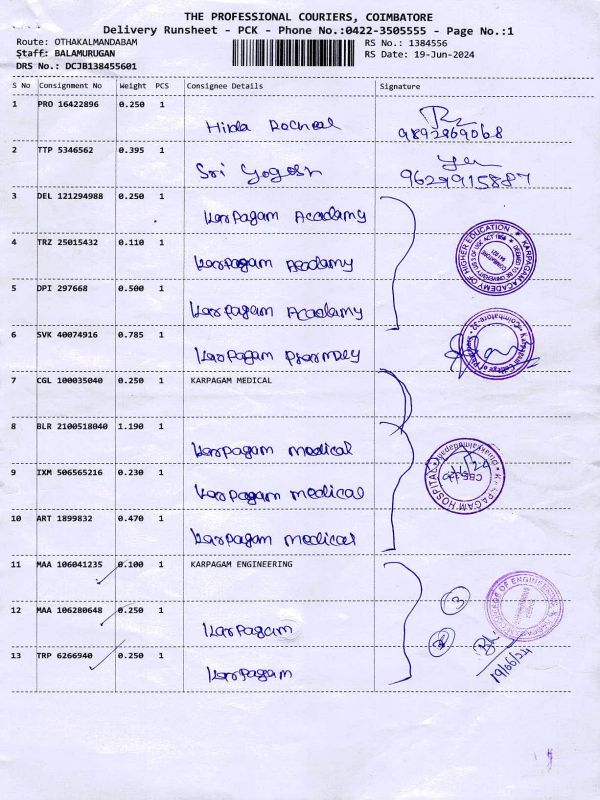 THE PROFESSIONAL COURIERS, COIMBATORE
Delivery Runsheet - PCK - Phone No.:0422-3505555 - Page No.:1
Route: OTHAKALMANDABAM RS No.: 1384556
Staff: BALAMURUGAN RS Date: 19-Jun-2024
DRS No.: DCJB138455601
S No Consignment No Weight PCS Consignee Details Signature
1 PRO 16422896 0.250 1
9892969068
2 TTP 5346562 0.395 1
Sri Yogesh 9629915887
3 DEL 121294988 0.250 1
Karpagam Acadamy
4 TRZ 25015432 0.110 1
Karpagam Acadamy
5 DPI 297668 0.500 1
Karpagam Acadamy
6 SVK 40074916 0.785 1
Karpagam
7 CGL 100035040 0.250 1 KARPAGAM MEDICAL
8 BLR 2100518040 1.190 1
Karpagam medical
9 IXM 506565216 0.230 1
Karpagam medical
10 ART 1899832 0.470 1
Karpagam medical
11 MAA 106041235 0.100 1 KARPAGAM ENGINEERING
12 MAA 106280648 0.250 1
Karpagam
13 TRP 6266940 0.250 1
Karpagam
19/06/24
KARPAGAM ACADEMY OF HIGHER EDUCATION
KARPAGAM HOSPITAL
COLLEGE OF ENGINEERING